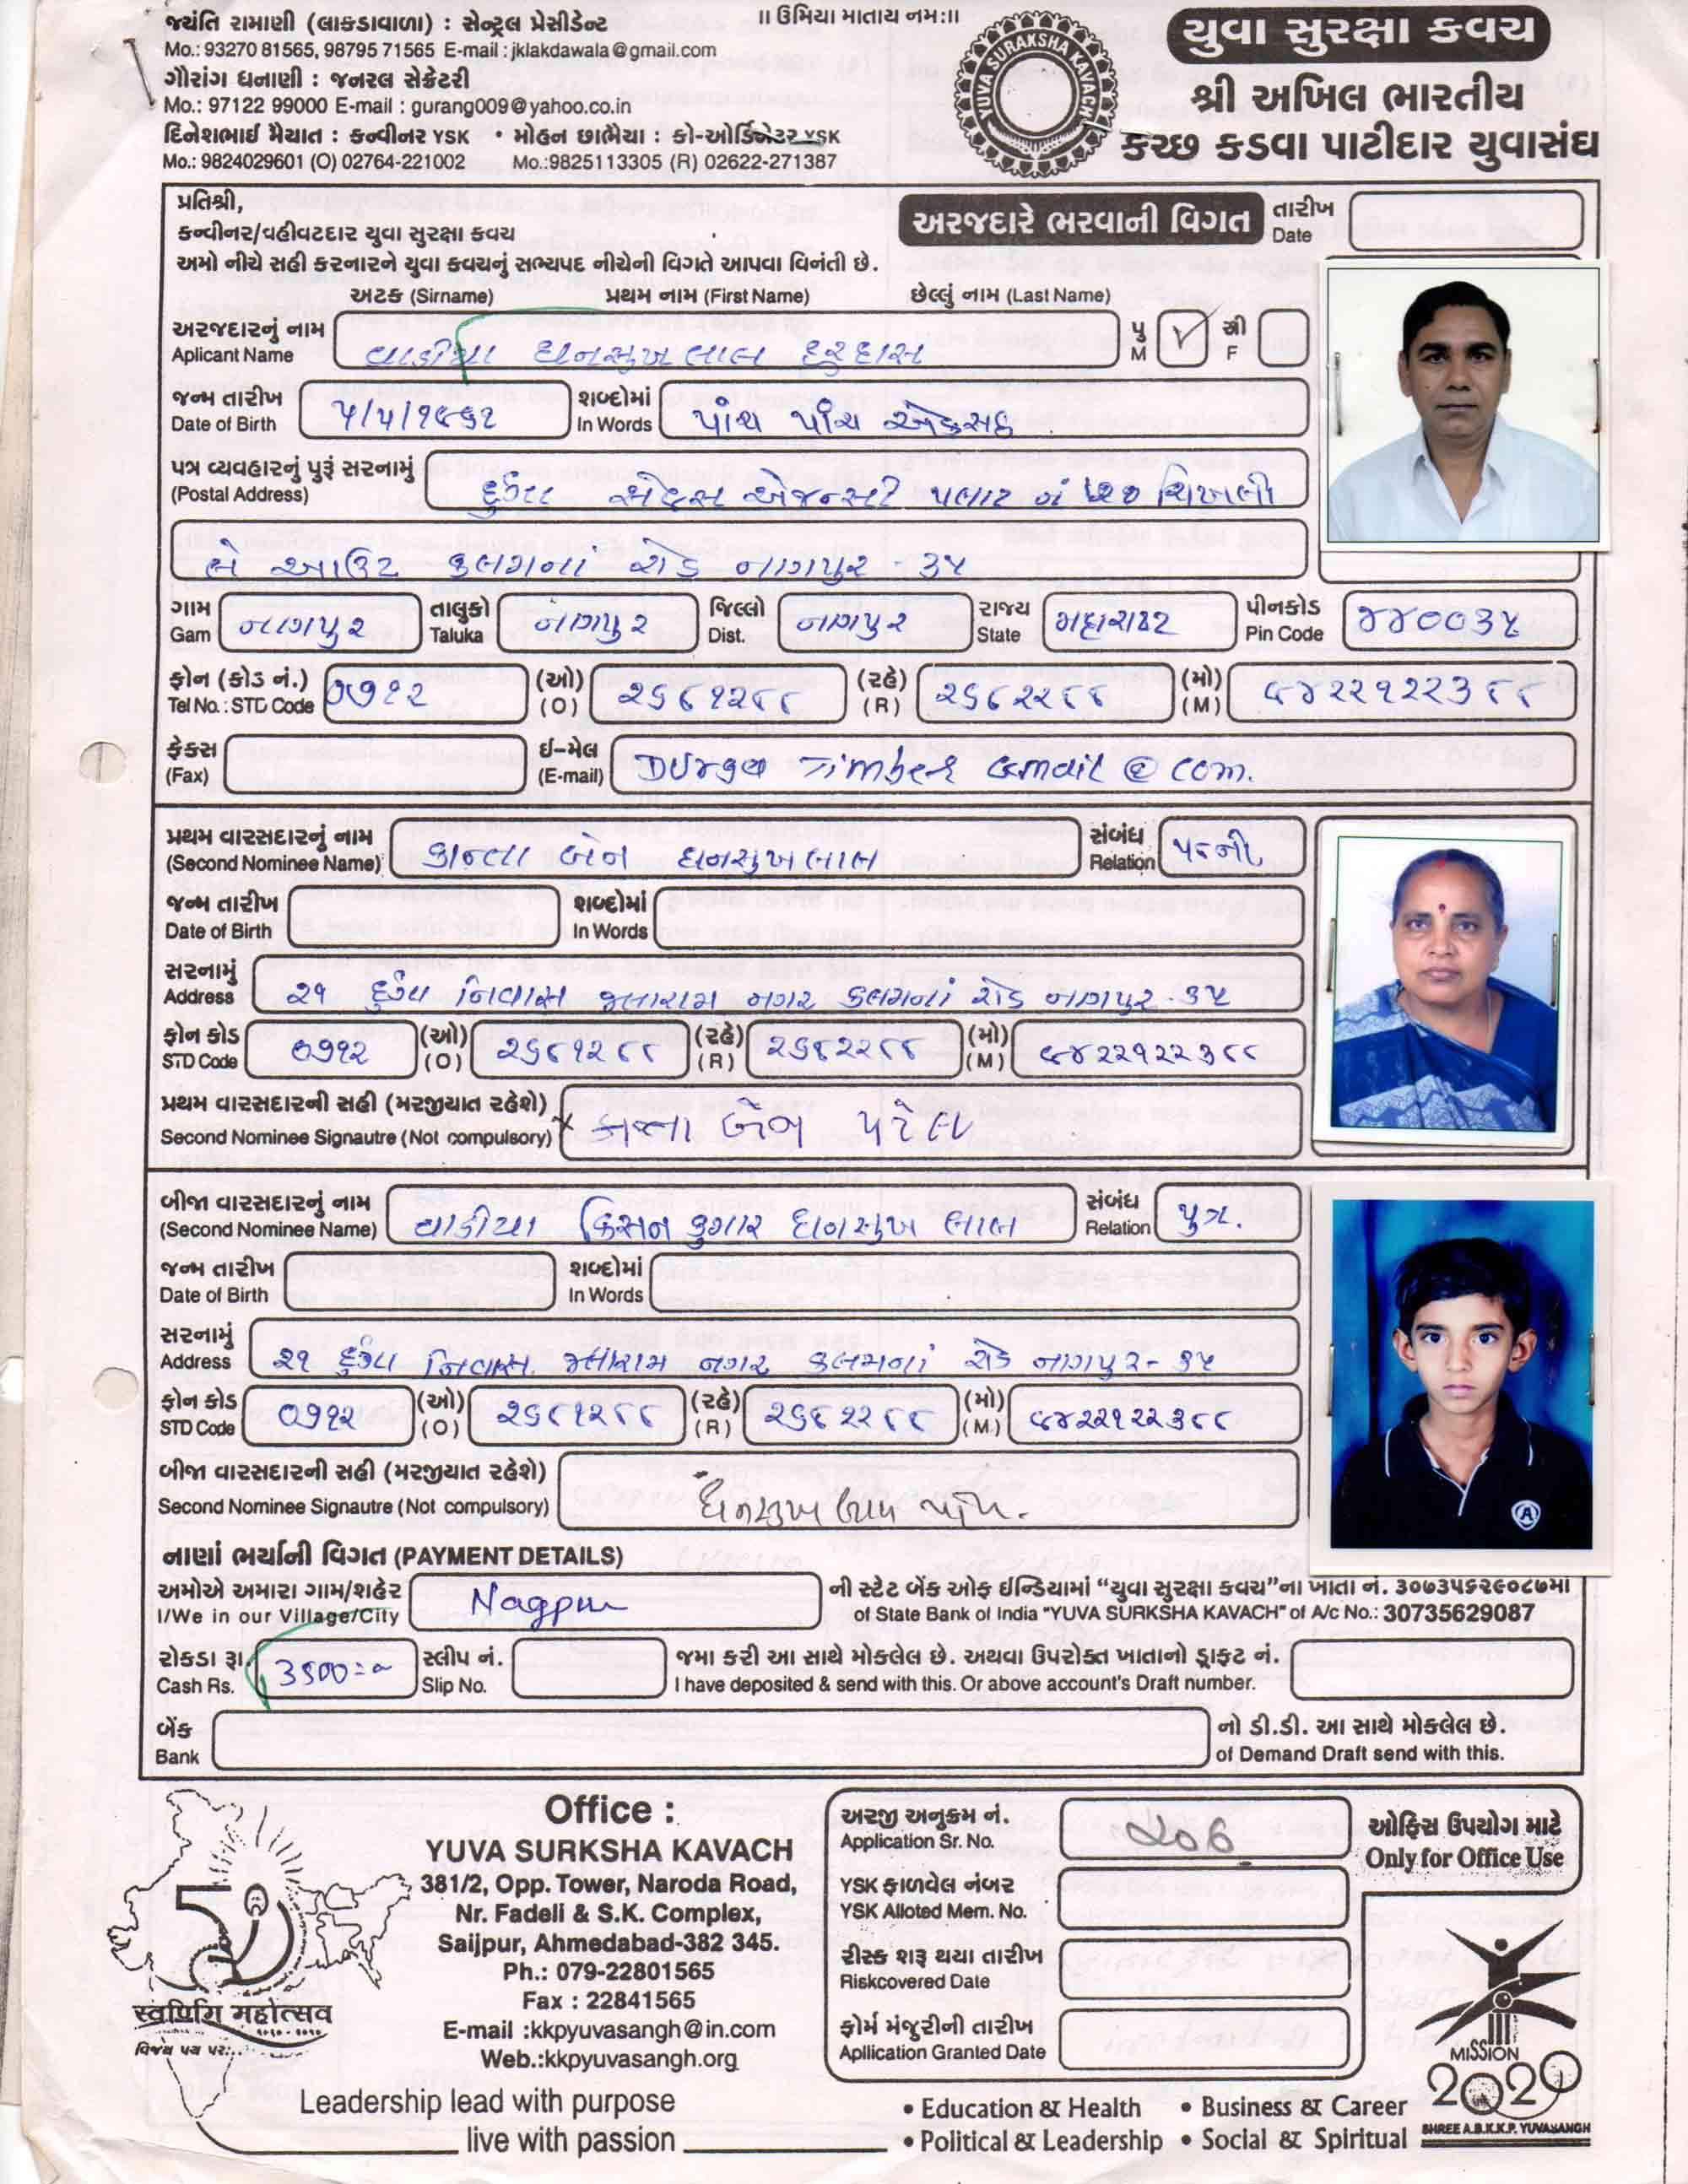 જયંતિ રામાણી (લાકડાવાળા) : સેન્ટ્રલ પ્રેસીડેન્ટ
Mo.: 93270 81565, 98795 71565 E-mail : jklakdawala@gmail.com
ગૌરાંગ ધનાણી : જનરલ સેક્રેટરી
Mo.: 97122 99000 E-mail : gurang009@yahoo.co.in
દિનેશભાઈ મૈયાત : કન્વીનર YSK • મોહન છાભૈયા : કો-ઓર્ડિનેટર YSK
Mo.: 9824029601 (O) 02764-221002 Mo.:9825113305 (R) 02622-271387
॥ ઉમિયા માતાય નમ:॥
YUVA SURAKSHA KAVACH
યુવા સુરક્ષા કવચ
શ્રી અખિલ ભારતીય
કચ્છ કડવા પાટીદાર યુવાસંઘ
પ્રતિશ્રી,
કન્વીનર/વહીવટદાર યુવા સુરક્ષા કવચ
અમો નીચે સહી કરનારને યુવા કવચનું સભ્યપદ નીચેની વિગતે આપવા વિનંતી છે.
અરજદારે ભરવાની વિગત
તારીખ
Date
અટક (Sirname) પ્રથમ નામ (First Name) છેલ્લું નામ (Last Name)
અરજદારનું નામ
Aplicant Name
વાડીયા ધનસુખલાલ
પુ સ્ત્રી
M F
જન્મ તારીખ
Date of Birth
૫/૫/૧૯૬૧
શબ્દોમાં
In Words
પાંચ પાંચ એકસઠ
પત્ર વ્યવહારનું પુરૂં સરનામું
(Postal Address)
દુર્ગા સેલ્સ એજન્સી પલાટ નં ચિખલી
લે આઉટ કલમનાં રોડ નાગપુર - ૩૫
ગામ
Gam
નાગપુર
તાલુકો
Taluka
નાગપુર
જિલ્લો
Dist.
નાગપુર
રાજ્ય
State
મહારાષ્ટ્ર
પીનકોડ
Pin Code
૪૪૦૦૩૫
ફોન (કોડ નં.)
Tel No. : STD Code
૦૭૧૨
(ઓ)
(O)
૨૬૮૧૨૮૮
(રહે)
(R)
૨૬૮૨૨૮૮
(મો)
(M)
૯૪૨૨૧૨૨૩૮૮
ફેક્સ
(Fax)
ઈ-મેલ
(E-mail)
Durga Timber Gmail @ com.
પ્રથમ વારસદારનું નામ
(Second Nominee Name)
કાન્તા બેન ધનસુખલાલ
સંબંધ
Relation
પત્ની
જન્મ તારીખ
Date of Birth
શબ્દોમાં
In Words
સરનામું
Address
૨૧ દુર્ગા નિવાસ જલારામ નગર કલમનાં રોડ નાગપુર - ૩૫
ફોન કોડ
STD Code
૦૭૧૨
(ઓ)
(O)
૨૬૮૧૨૮૮
(રહે)
(R)
૨૬૮૨૨૮૮
(મો)
(M)
૯૪૨૨૧૨૨૩૮૮
પ્રથમ વારસદારની સહી (મરજીયાત રહેશે)
Second Nominee Signautre (Not compulsory)
કાન્તા બેન પટેલ
બીજા વારસદારનું નામ
(Second Nominee Name)
વાડીયા કિસન કુમાર ધનસુખ લાલ
સંબંધ
Relation
પુત્ર.
જન્મ તારીખ
Date of Birth
શબ્દોમાં
In Words
સરનામું
Address
૨૧ દુર્ગા નિવાસ જલારામ નગર કલમનાં રોડ નાગપુર - ૩૫
ફોન કોડ
STD Code
૦૭૧૨
(ઓ)
(O)
૨૬૮૧૨૮૮
(રહે)
(R)
૨૬૮૨૨૮૮
(મો)
(M)
૯૪૨૨૧૨૨૩૮૮
બીજા વારસદારની સહી (મરજીયાત રહેશે)
Second Nominee Signautre (Not compulsory)
ધનસુખ લાલ
નાણાં ભર્યાની વિગત (PAYMENT DETAILS)
અમોએ અમારા ગામ/શહેર
I/We in our Village/City
Nagpur
ની સ્ટેટ બેંક ઓફ ઈન્ડિયામાં “યુવા સુરક્ષા કવચ”ના ખાતા નં. ૩૦૭૩૫૬૨૯૦૮૭માં
of State Bank of India "YUVA SURKSHA KAVACH" of A/c No.: 30735629087
રોકડા રૂા.
Cash Rs.
3500=00
સ્લીપ નં.
Slip No.
જમા કરી આ સાથે મોકલેલ છે. અથવા ઉપરોક્ત ખાતાનો ડ્રાફ્ટ નં.
I have deposited & send with this. Or above account's Draft number.
બેંક
Bank
નો ડી.ડી. આ સાથે મોકલેલ છે.
of Demand Draft send with this.
Office :
YUVA SURKSHA KAVACH
381/2, Opp. Tower, Naroda Road,
Nr. Fadeli & S.K. Complex,
Saijpur, Ahmedabad-382 345.
Ph.: 079-22801565
Fax : 22841565
E-mail :kkpyuvasangh@in.com
Web.:kkpyuvasangh.org
50
स्वर्णिम महोत्सव
વિજય પથ પર...
Leadership lead with purpose
live with passion
અરજી અનુક્રમ નં.
Application Sr. No.
૨૦૬
YSK ફાળવેલ નંબર
YSK Alloted Mem. No.
રીસ્ક શરૂ થયા તારીખ
Riskcovered Date
ફોર્મ મંજુરીની તારીખ
Apllication Granted Date
ઓફિસ ઉપયોગ માટે
Only for Office Use
MISSION
2020
SHREE A.B.K.K.P. YUVASANGH
• Education & Health • Business & Career
• Political & Leadership • Social & Spiritual